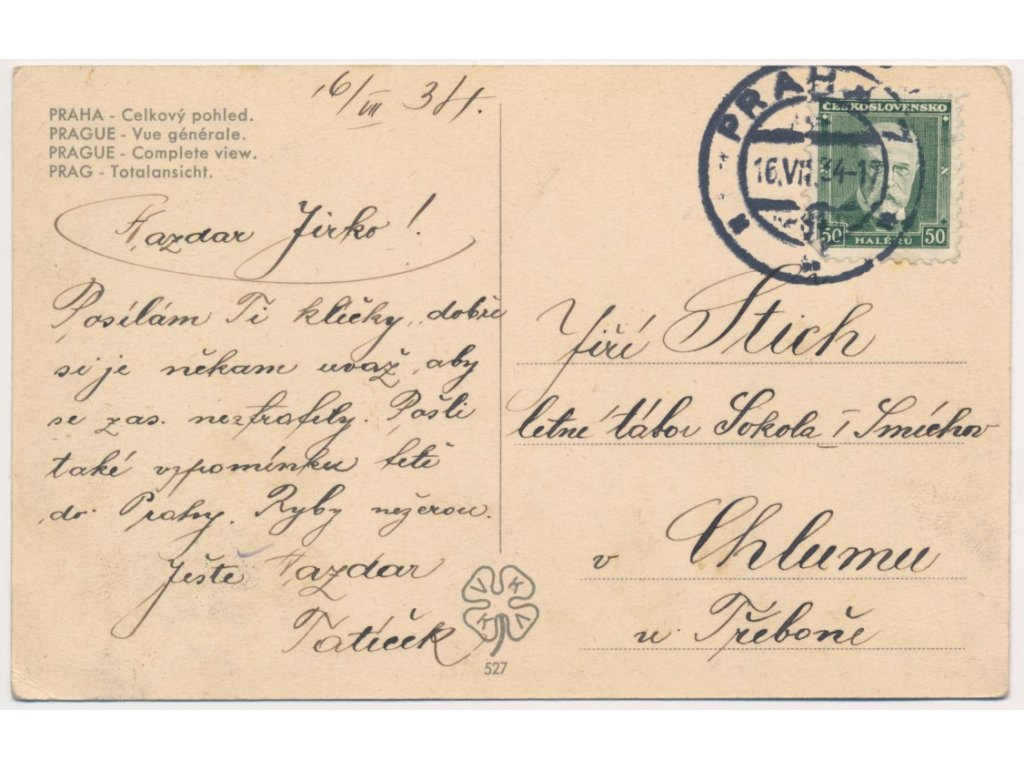 16/VII 34.
PRAHA - Celkový pohled.
PRAGUE - Vue générale.
PRAGUE - Complete view.
PRAG - Totalansicht.
Nazdar Jirko!
Posílám Ti klíčky, dobře
si je někam uvaž, aby
se zas. neztratily. Pošli
také vzpomínku tetě
do Prahy. Ryby nežerou.
Ještě Nazdar
Tatíček
V K
K V
527
PRAHA
16.VII.34-17
ČESKOSLOVENSKO
50 HALÉŘŮ 50
Jiří Stich
letné tábor Sokola I Smíchov
v Chlumu
u Třeboně